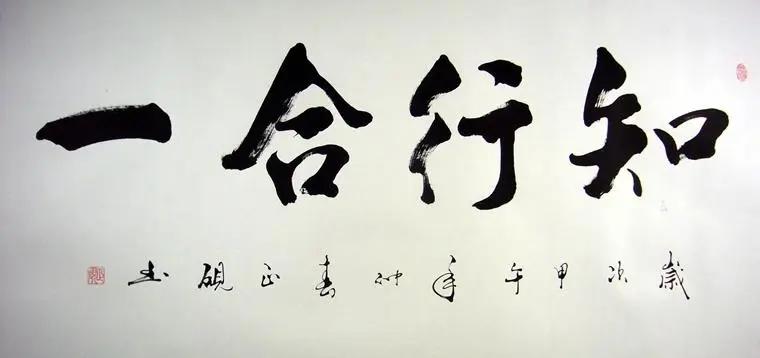 知行合一
歲次甲午年仲春正硯書